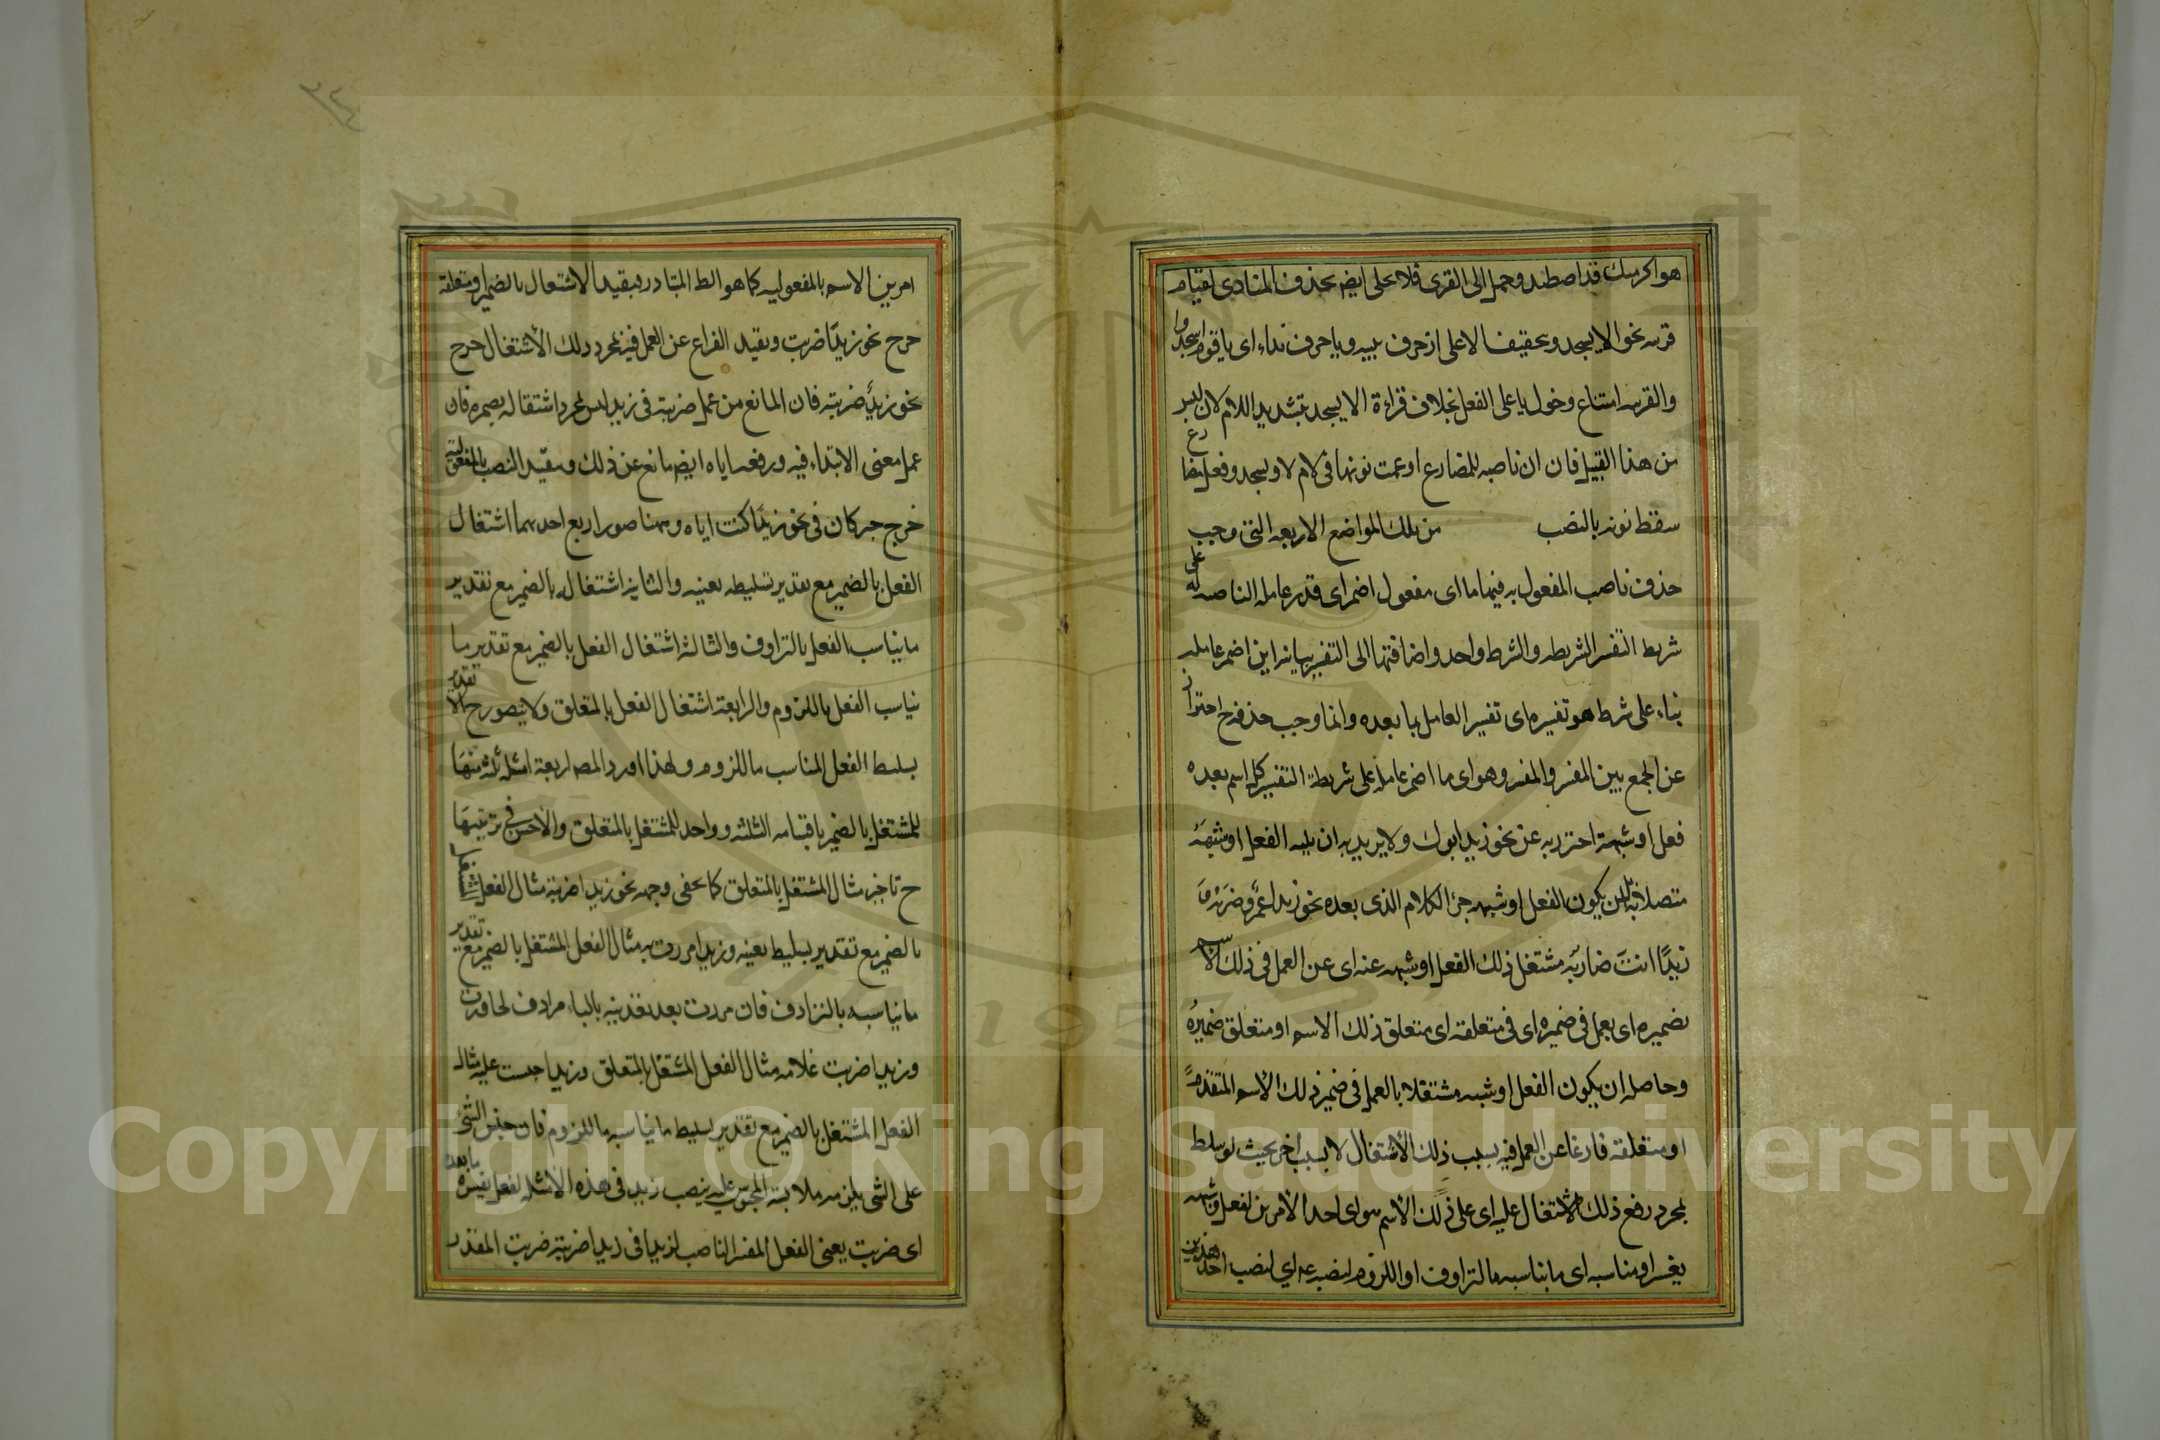 هو اكرمنك قد اصطيد وحمل الى القرى فلا يخلى ايضم بحذف المنادى لقيام
قرينه نحو الا يسجدو بتحقيف الا على انه حرف تنبيه ويا حرف نداء اى يا قوم اسجدوا
والقرينه امتناع دخول يا على الفعل بخلاف قراءة الا يسجد بتشديد اللام لان ليس
من هذا القبيل فان ان ناصبه للمضارع ادغمت نونها فى لام لا ويسجدو فعل مضارع
سقط نونه بالنصب من تلك المواضع الاربعه التى وجب
حذف ناصب المفعول به فيها ما اى مفعول اضمر اى قدر عامله الناصب له على
شريطه التفسير الشريطه والشرط واحد واضافتها الى التفسير بيانيه اى اضمر عامله
بناء على شرط هو تفسيره اى تفسير العامل بما بعده وانما وجب حذفه ح احترازا
عن الجمع بين المفسر والمفسر وهو اى ما اضمر عامله على شريطة التفسير كل اسم بعده
فعل او شبهه احترز به عن نحو زيد ابوك ولا يريد به ان يليه الفعل او شبهه
متصلا به بل ان يكون الفعل او شبهه جزء الكلام الذى بعده نحو زيدا عمرو ضربه و
زيدًا انت ضاربه مشتغل ذلك الفعل او شبهه عنه اى عن العمل فى ذلك الاسم
بضميره اى بعمل فى ضميره اى فى متعلقه اى متعلق ذلك الاسم او متعلق ضميره
وحاصله ان يكون الفعل او شبهه مشتغلا بالعمل فى ضمير ذلك الاسم المتقدم
او متعلقه فارغا عن العمل فيه بسبب ذلك الاشتغال لا بسبب اخر بحيث لو سلط
بمجرد رفع ذلك الاشتغال عليه اى على ذلك الاسم هو اى احد الامرين لفعل وشبهه
بعينه او مناسبه اى ما يناسبه بالترادف او اللزوم لنصبه اى لنصب احد هذين
امرين الاسم بالمفعوليه كما هو الظ المتبادر فبقيد الاشتغال بالضمير او متعلقه
خرج نحو زيدًا ضربت وبقيد الفراغ عن العمل فيه بمجرد ذلك الاشتغال خرج
نحو زيدٌ ضربته فان المانع من عمل ضربته فى زيد ليس بمجرد اشتغاله بضميره فان
عمل معنى الابتداء فيه ورفعه اياه ايضم مانع عن ذلك وبقيد النصب بالمفعولية
خرج خبر كان فى نحو زيدًا كنت اياه وههنا صور اربع احديها اشتغال
الفعل بالضمير مع تقدير تسليطه بعينه والثانيه اشتغاله بالضمير مع تقدير
ما يناسب الفعل بالترادف والثالثة اشتغال الفعل بالضمير مع تقدير ما
يناسب الفعل باللزوم والرابعة اشتغال الفعل بالمتعلق ولا يتصور ح الا تقدير
تسليط الفعل المناسب باللزوم ولهذا اورد المصم اربعة امثله ثلثه منها
للمشتغل بالضمير باقسامه الثلثه وواحد للمشتغل بالمتعلق والاحسن فى ترتيبها
ح تاخير مثال المشتغل بالمتعلق كما يخفى وجهه نحو زيدا ضربته مثال الفعل المشتغل
بالضمير مع تقدير تسليطه بعينه وزيدا مررت به مثال الفعل المشتغل بالضمير مع تقدير
ما يناسبه بالترادف فان مررت بعد تعديته بالباء مرادف لجاوزت
وزيدا ضربت غلامه مثال الفعل المشتغل بالمتعلق وزيدا حبست عليه مثال
الفعل المشتغل بالضمير مع تقدير تسليط ما يناسبه باللزوم فان حبس الشئ
على الشى يلزمه ملابسة المحبوس عليه ينصب زيد فى هذه الامثله لفعل يفسره ما بعده
اى ضربت يعنى الفعل المفسر الناصب لزيدا فى زيدا ضربته ضربت المقدر
Copyright © King Saud University
1957